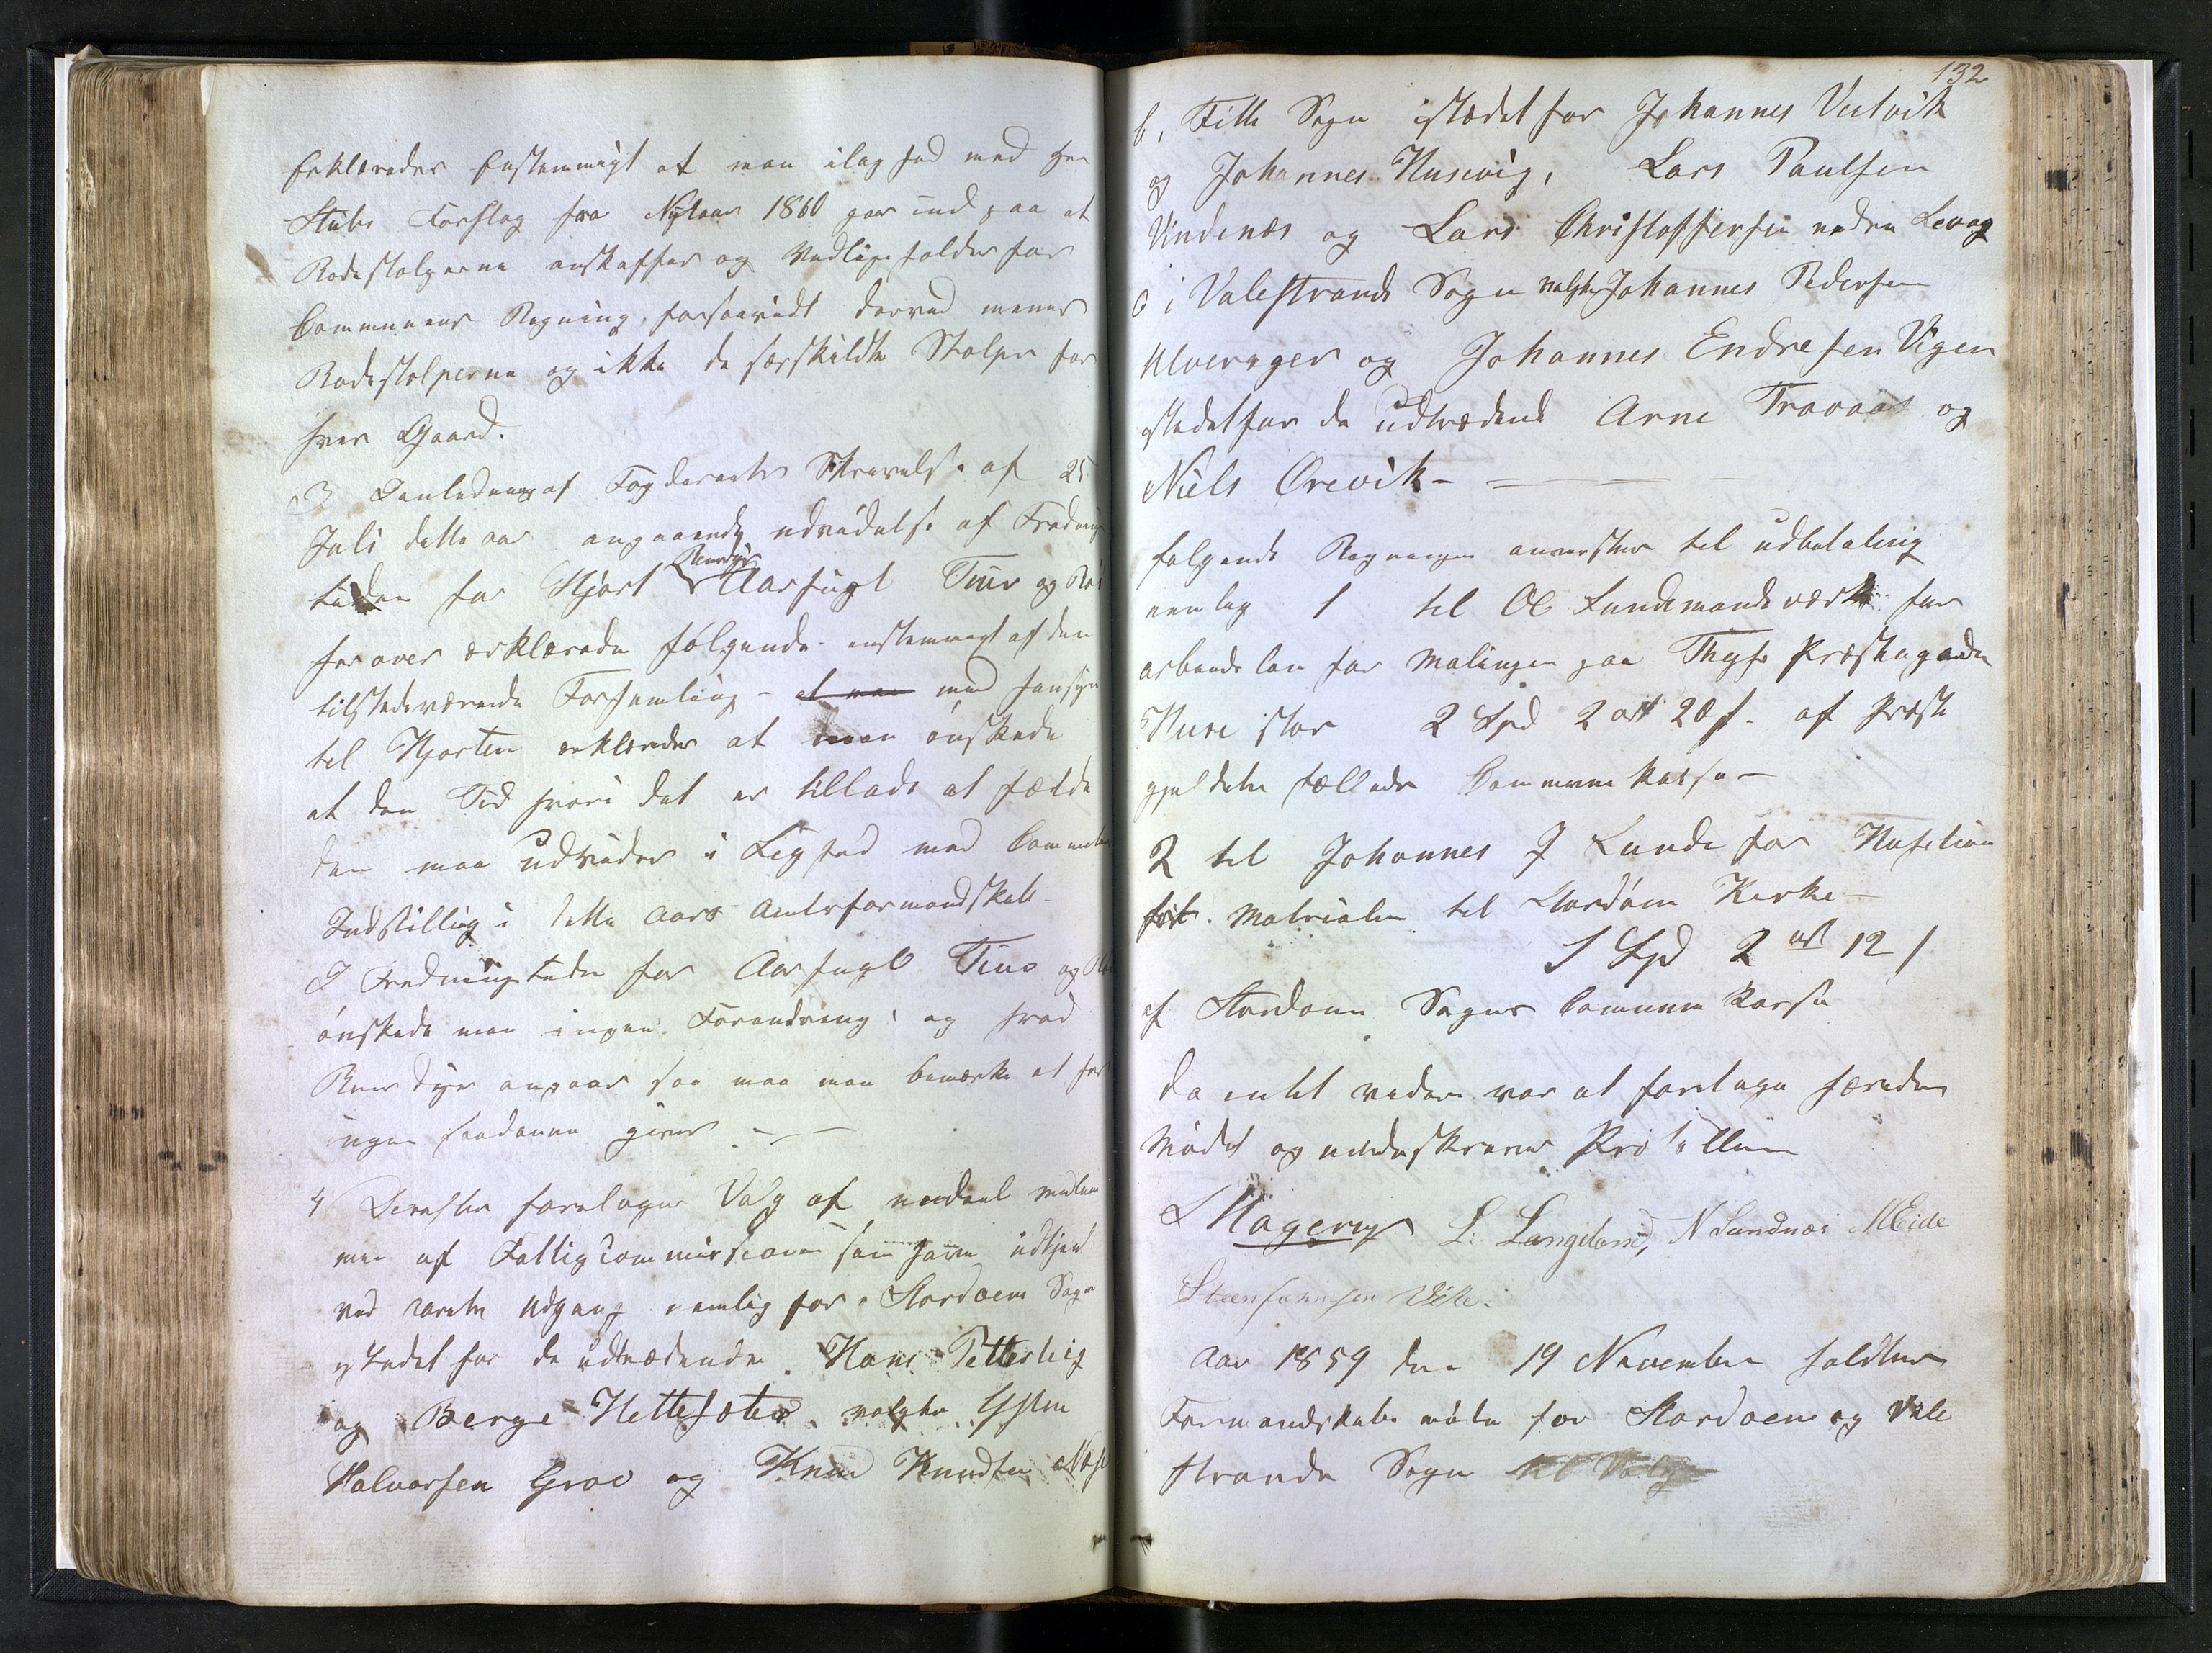 Erklæredes Enstemmigt at man ilaghed med Hr
Stubs Forslag fra Nytaar 1860 gaar ind paa at
Rodestolperne anskaffes og Vedligeholdes for
Communens Regning, forsaavidt derved menes
Rodestolperne og ikke de særskildte Stolper for
hver Gaard.
3 I Anledning af Fogderiets Skrivelse af 25
Juli dette aar angaaende udvidelse af Frednings
tiden for Hjort Rensdyr Aarfugl Tiur og Røi
herover erklærede følgende enstemmigt af den
tilstedeværende Forsamling - at man med Hensyn
til Hjorten erklæredes at man ønskede
at den Tid hvori det er tilladt at fælde
den maa udvides i Lighed med Committeens
Indstilling i dette Aars Amtsformandskab.
I Fredningstiden for Aarfugl Tiur og Røi
ønskede man ingen Forandring, og hvad
Rensdyr angaar saa maa man bemærke at her
ingen saadanne gives. -
4 Derefter foretages Valg af nye medlem
mer af Fattigcommissionen som have udtjent
ved aarets Udgang nemlig for Stordøens Sogn
istedet for de udtrædende Hans Petterteig
og Børge Hettesæter valgtes Østen
Halvorsen Groe og Knud Knudsen Næse
132
b, Fitje Sogn istædet for Johannes Vestvik
og Johannes Husevig, Lars Paulsen
Vindenæs og Lars Christoffersen nedre Levag
c i Valestrands Sogn valgtes Johannes Pedersen
Ulverager og Johannes Endresen Vigen
istedetfor de udtrædende Arne Travaas og
Niels Ørevik -
følgende Regninger anvistes til udbetaling
nemlig 1 til O. Lundemandsværk for
arbeidsløn for Malingen paa Thysse Præstegaards
Huse stor 2 Spd 2 ort 20 s. af Præste
gjeldets fælleds Commune Kasse -
2 til Johannes J Lunde for
Matrialier til Stordøens Kirke -
1 Spd 2 ort 12 s
af Stordøens Sogns Commune Kasse
Da intet videre var at foretage hævedes
Mødet og underskreves Protokollen
L Hageruys L. Langeland, N Sandnæs M Eide
Steen Johnsen Viste.
Aar 1859 den 19 November holdtes
Formandskabs møde for Stordøens og Vale
strands Sogn til Valg